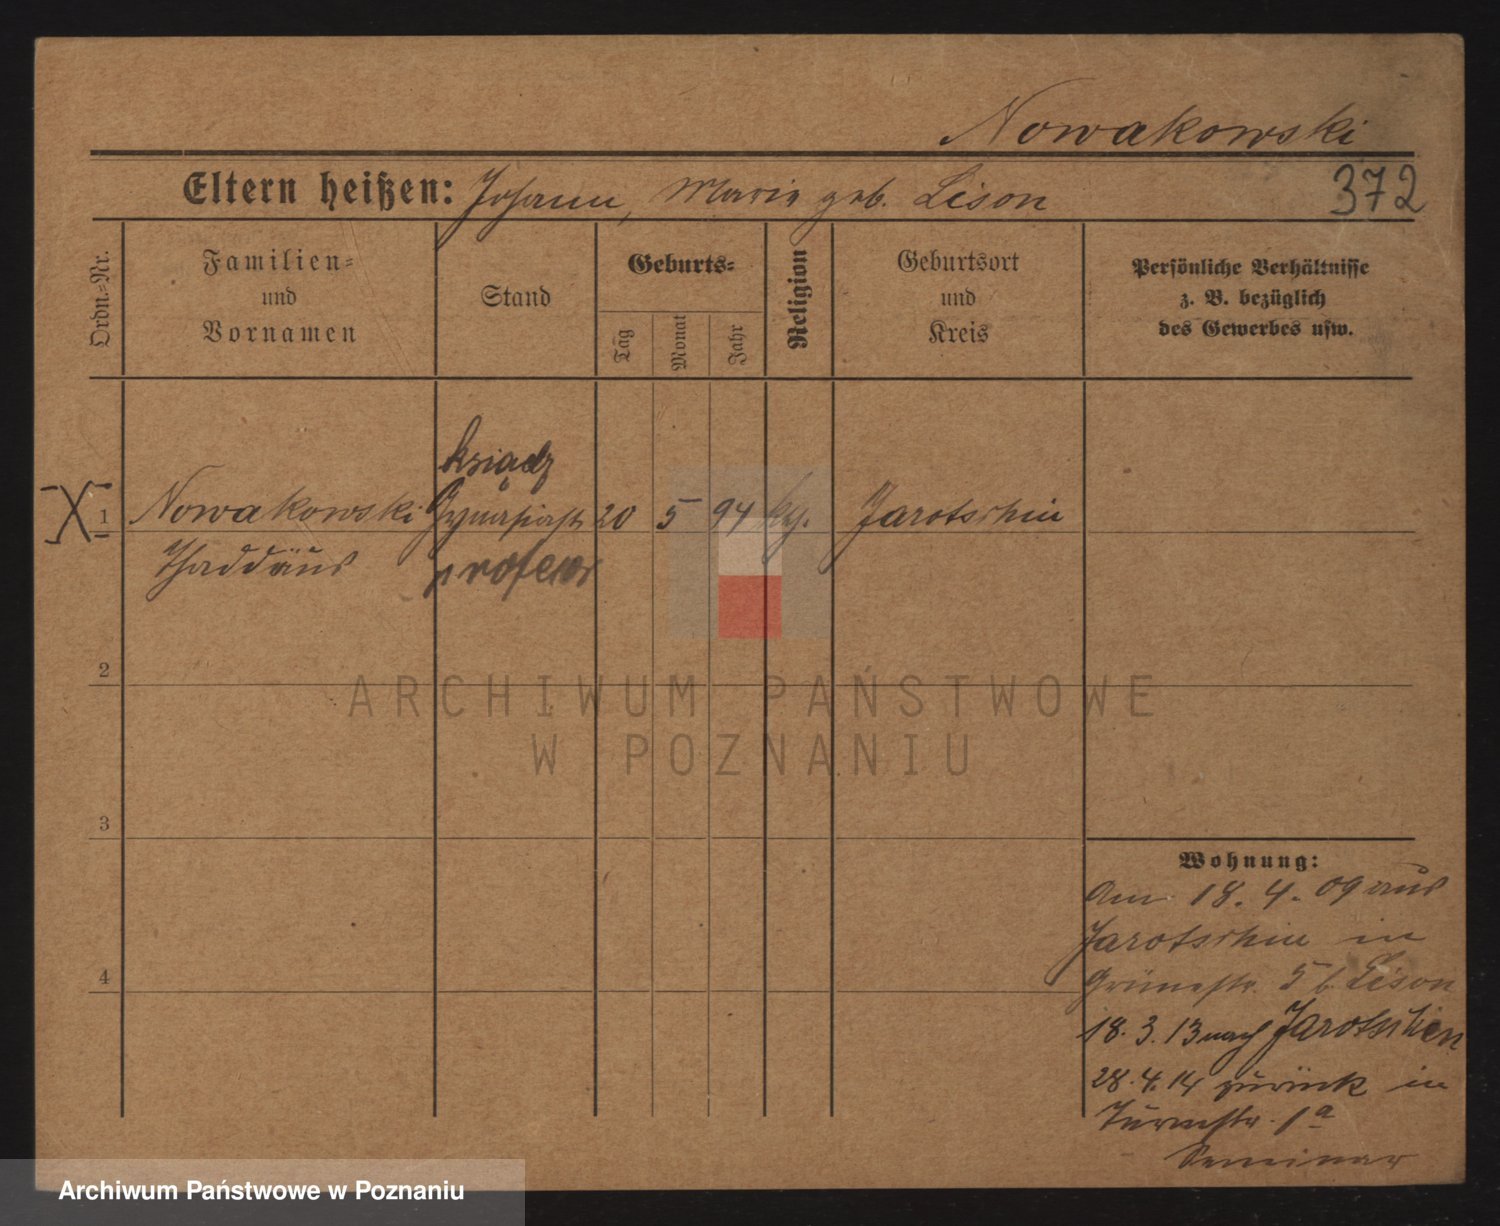 Nowakowski
Eltern heißen: Johann, Marie geb. Lison
372
Ordn.-Nr.
Familien-
und
Vornamen
Stand
Geburts-
Tag
Monat
Jahr
Religion
Geburtsort
und
Kreis
Persönliche Verhältnisse
z. B. bezüglich
des Gewerbes usw.
ksiądz
X 1 Nowakowski Gymnasiast 20 5 94 kg. Jarotschin
Thaddäus profesor
2
ARCHIWUM PAŃSTWOWE
W POZNANIU
3
Wohnung:
Am 18. 4. 09 aus
Jarotschin in
Grünestr. 5 b. Lison
4
18. 3. 13 nach Jarotschin
28. 4. 14 zurück in
Turmstr. 1a
Seminar
Archiwum Państwowe w Poznaniu